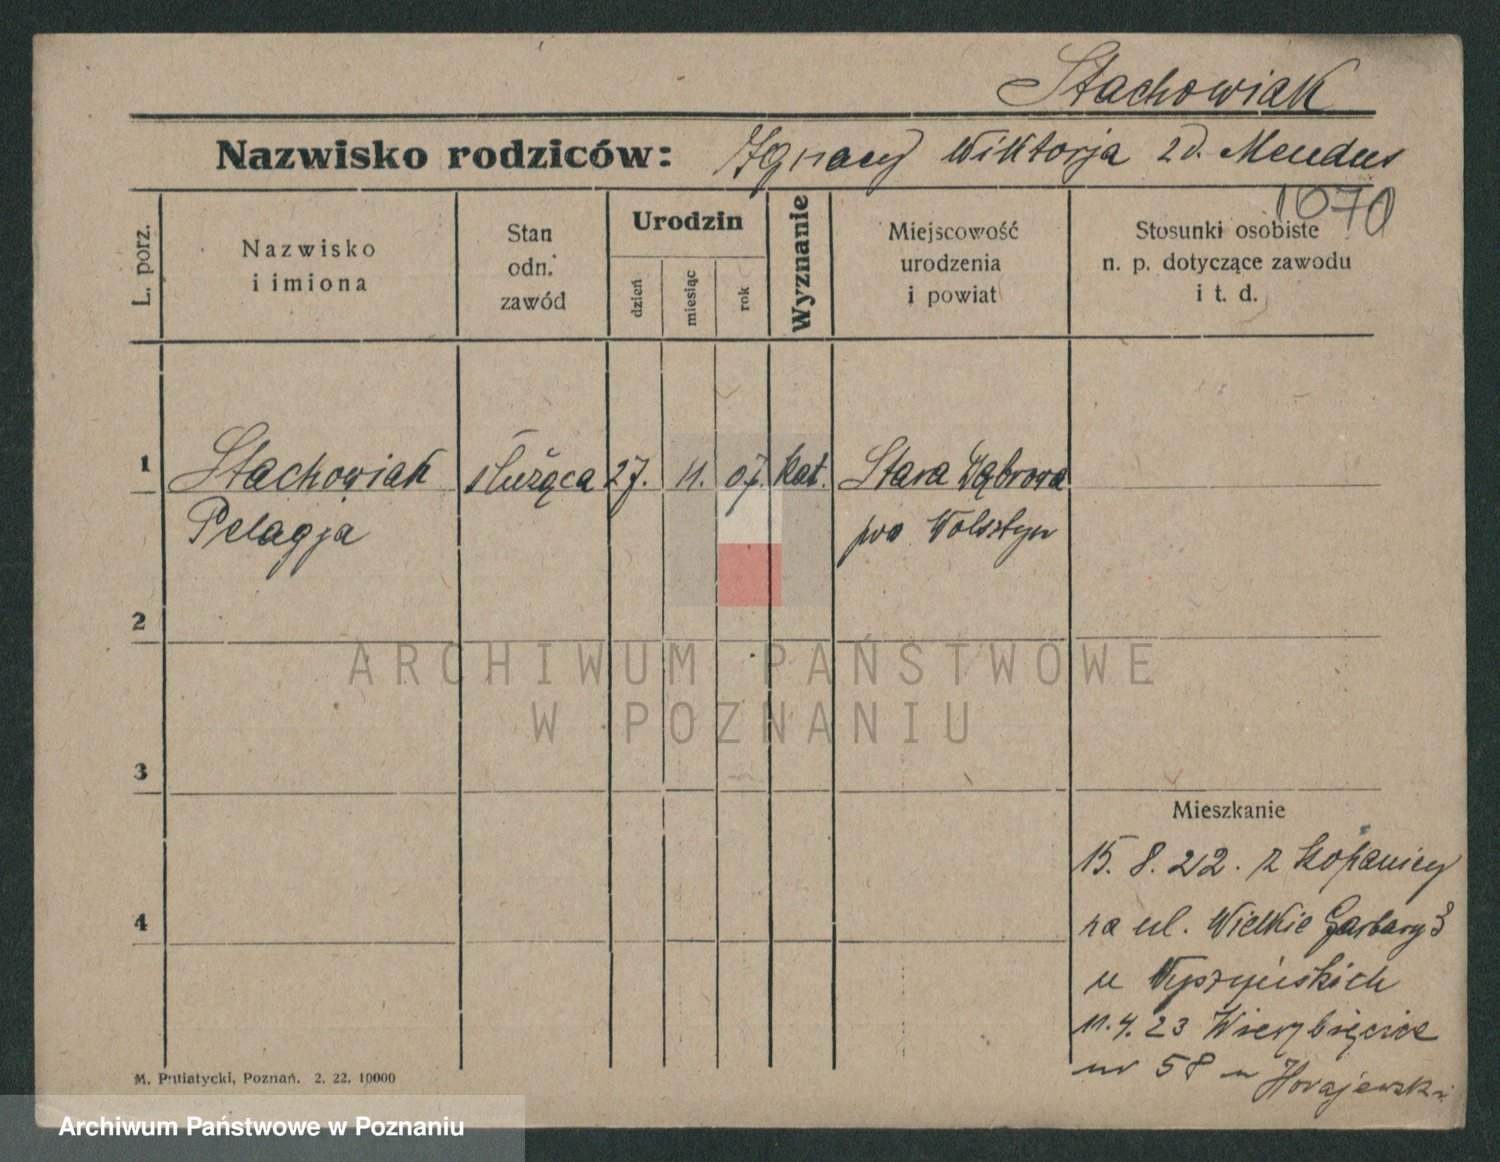 Stachowiak
Nazwisko rodziców: Ignacy Wiktorja zd. Mendus
1070
L. porz.
Nazwisko
i imiona
Stan
odn.
zawód
Urodzin
dzień
miesiąc
rok
Wyznanie
Miejscowość
urodzenia
i powiat
Stosunki osobiste
n. p. dotyczące zawodu
i t. d.
1 Stachowiak służąca 27. 11. 07. kat. Stara Dąbrowa
Pelagja pow Wolsztyn
2
ARCHIWUM PAŃSTWOWE
W POZNANIU
3
Mieszkanie
15. 8. 22. z Kopanicy
4
na ul. Wielkie Garbary 3
u Wyszyńskich
11. 4. 23 Wierzbięcice
nr 58 u
M. Putiatycki, Poznań. 2. 22. 10000
Archiwum Państwowe w Poznaniu